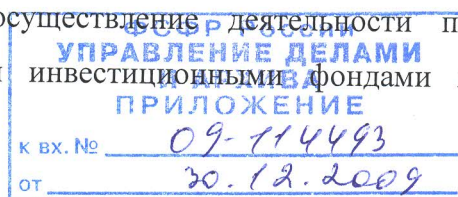 осуществление деятельности п
ФСФР РОССИИ
УПРАВЛЕНИЕ ДЕЛАМИ
инвестиционными фондами
И АРХИВА
ПРИЛОЖЕНИЕ
К ВХ. № 09-114493
ОТ 30.12.2009